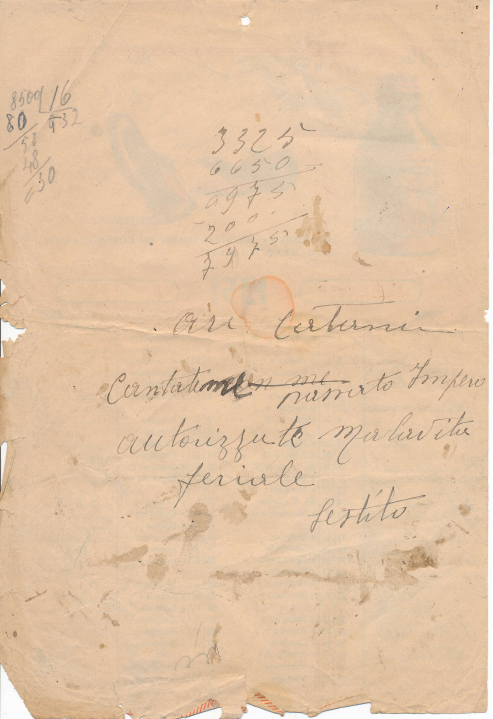 8500 16
80 532
50
48
030
3325
6650
0975
200
7975
Catania
Cantate
Impero
autorizzate Malavita
feriale
Sestito